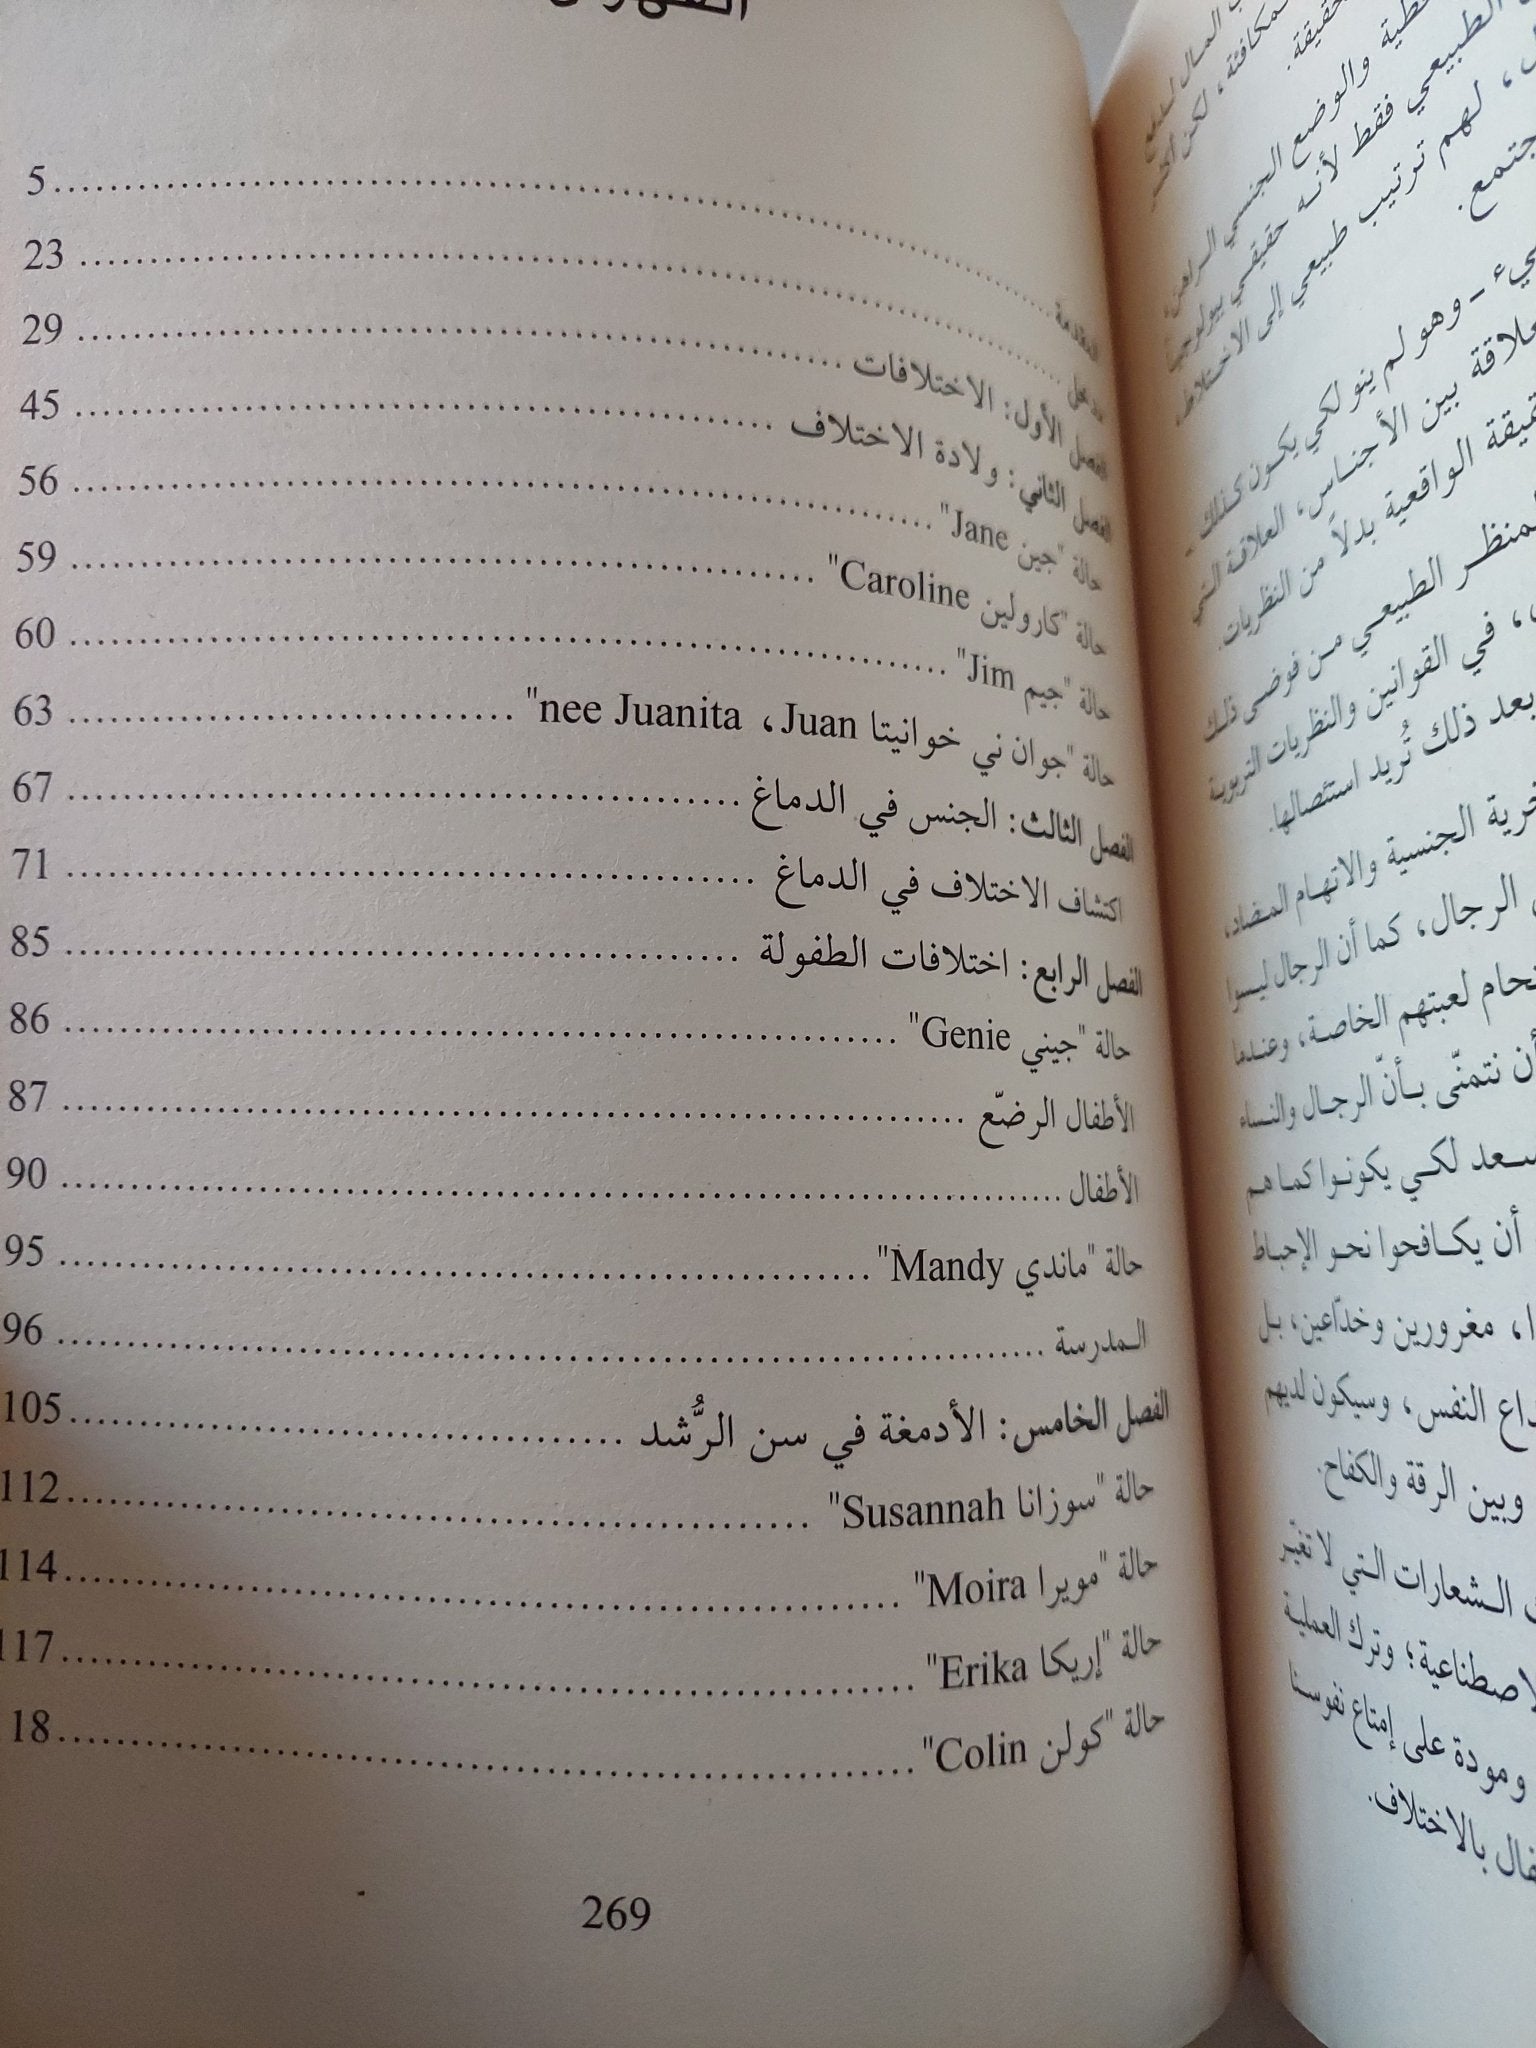 المقدمة 5
مدخل 23
الفصل الأول: الاختلافات 29
الفصل الثاني: ولادة الاختلاف 45
حالة "جين Jane" 56
حالة "كارولين Caroline" 59
حالة "جيم Jim" 60
حالة "جوان ني خوانيتا nee Juanita ،Juan" 63
الفصل الثالث: الجنس في الدماغ 67
اكتشاف الاختلاف في الدماغ 71
الفصل الرابع: اختلافات الطفولة 85
حالة "جيني Genie" 86
الأطفال الرضّع 87
الأطفال 90
حالة "ماندي Mandy" 95
المدرسة 96
الفصل الخامس: الأدمغة في سن الرُّشد 105
حالة "سوزانا Susannah" 112
حالة "مويرا Moira" 114
حالة "إريكا Erika" 117
حالة "كولن Colin" 18
269
والوضع الجنسي الراهن
الطبيعي فقط لأنه حقيقي بيولوجياً
لهم ترتيب طبيعي إلى الاختلاط،
جتمع.
ـيء - وهو لم ينو لكي يكون كذلك -
علاقة بين الأجناس، العلاقة التي
الواقعية بدلاً من النظريات.
المنظر الطبيعي من فوضى ذلك
، في القوانين والنظريات التربوية
بعد ذلك تُريد استئصالها.
الجنسية والاتهام المضاد،
الرجال، كما أن الرجال ليسوا
لعبتهم الخاصة، وعندما
أن نتمنّى بأنّ الرجال والنساء
لكي يكونوا كما هم
أن يكافحوا نحو الإحباط
ا، مغرورين وخدّاعين، بل
النفس، وسيكون لديهم
وبين الرقة والكفاح.
الشعارات التي لا تغيّر
؛ وترك العملية
ومودة على إمتاع نفوسنا
بالاختلاف.